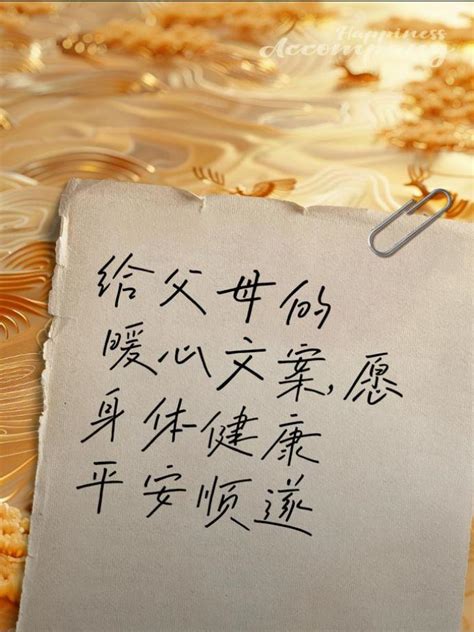 Happiness
Accompany
给父母的
暖心文案,愿
身体健康
平安顺遂